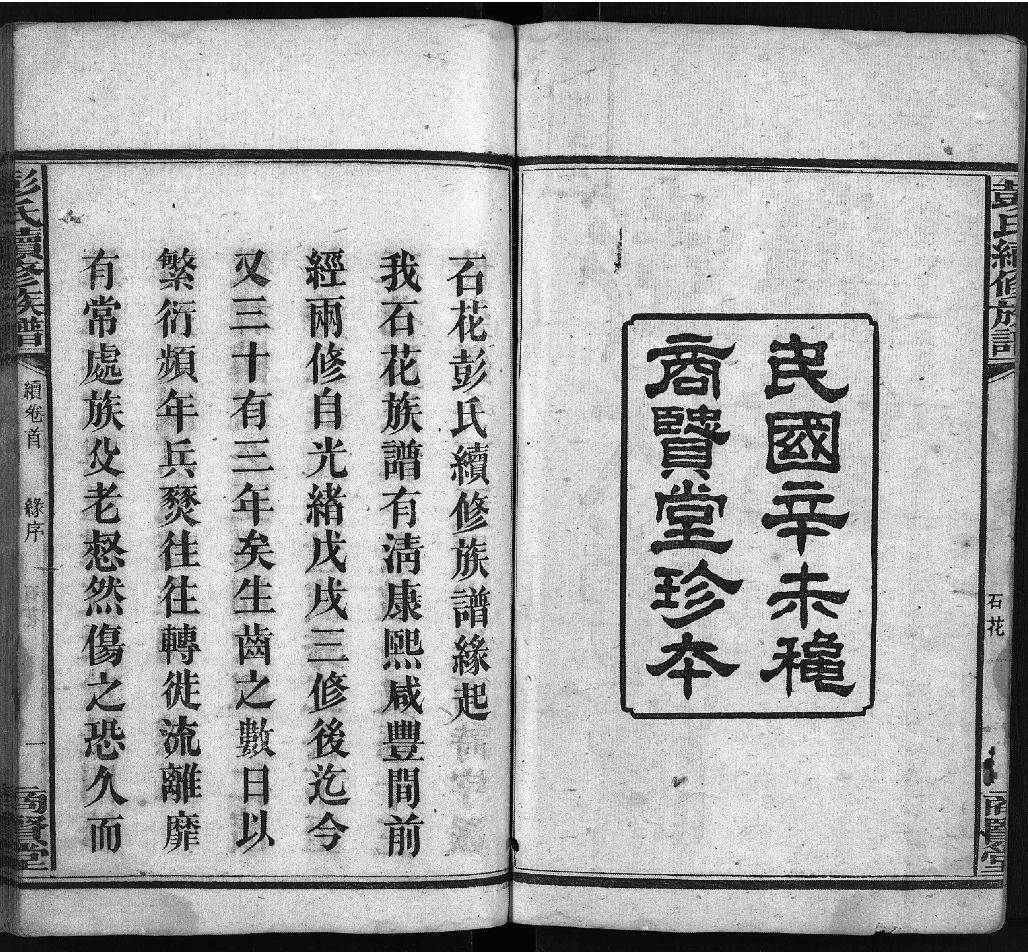 彭氏續修族譜
石花
商賢堂
民國辛未穐
商賢堂珍本
石花彭氏續修族譜緣起
我石花族譜有清康熙咸豐間前
經兩修自光緒戊戌三修後迄今
又三十有三年矣生齒之數日以
繁衍頻年兵燹往往轉徙流離靡
有常處族父老惄然傷之恐久而
彭氏續修族譜
續卷首
緣序
石花
一
商賢堂